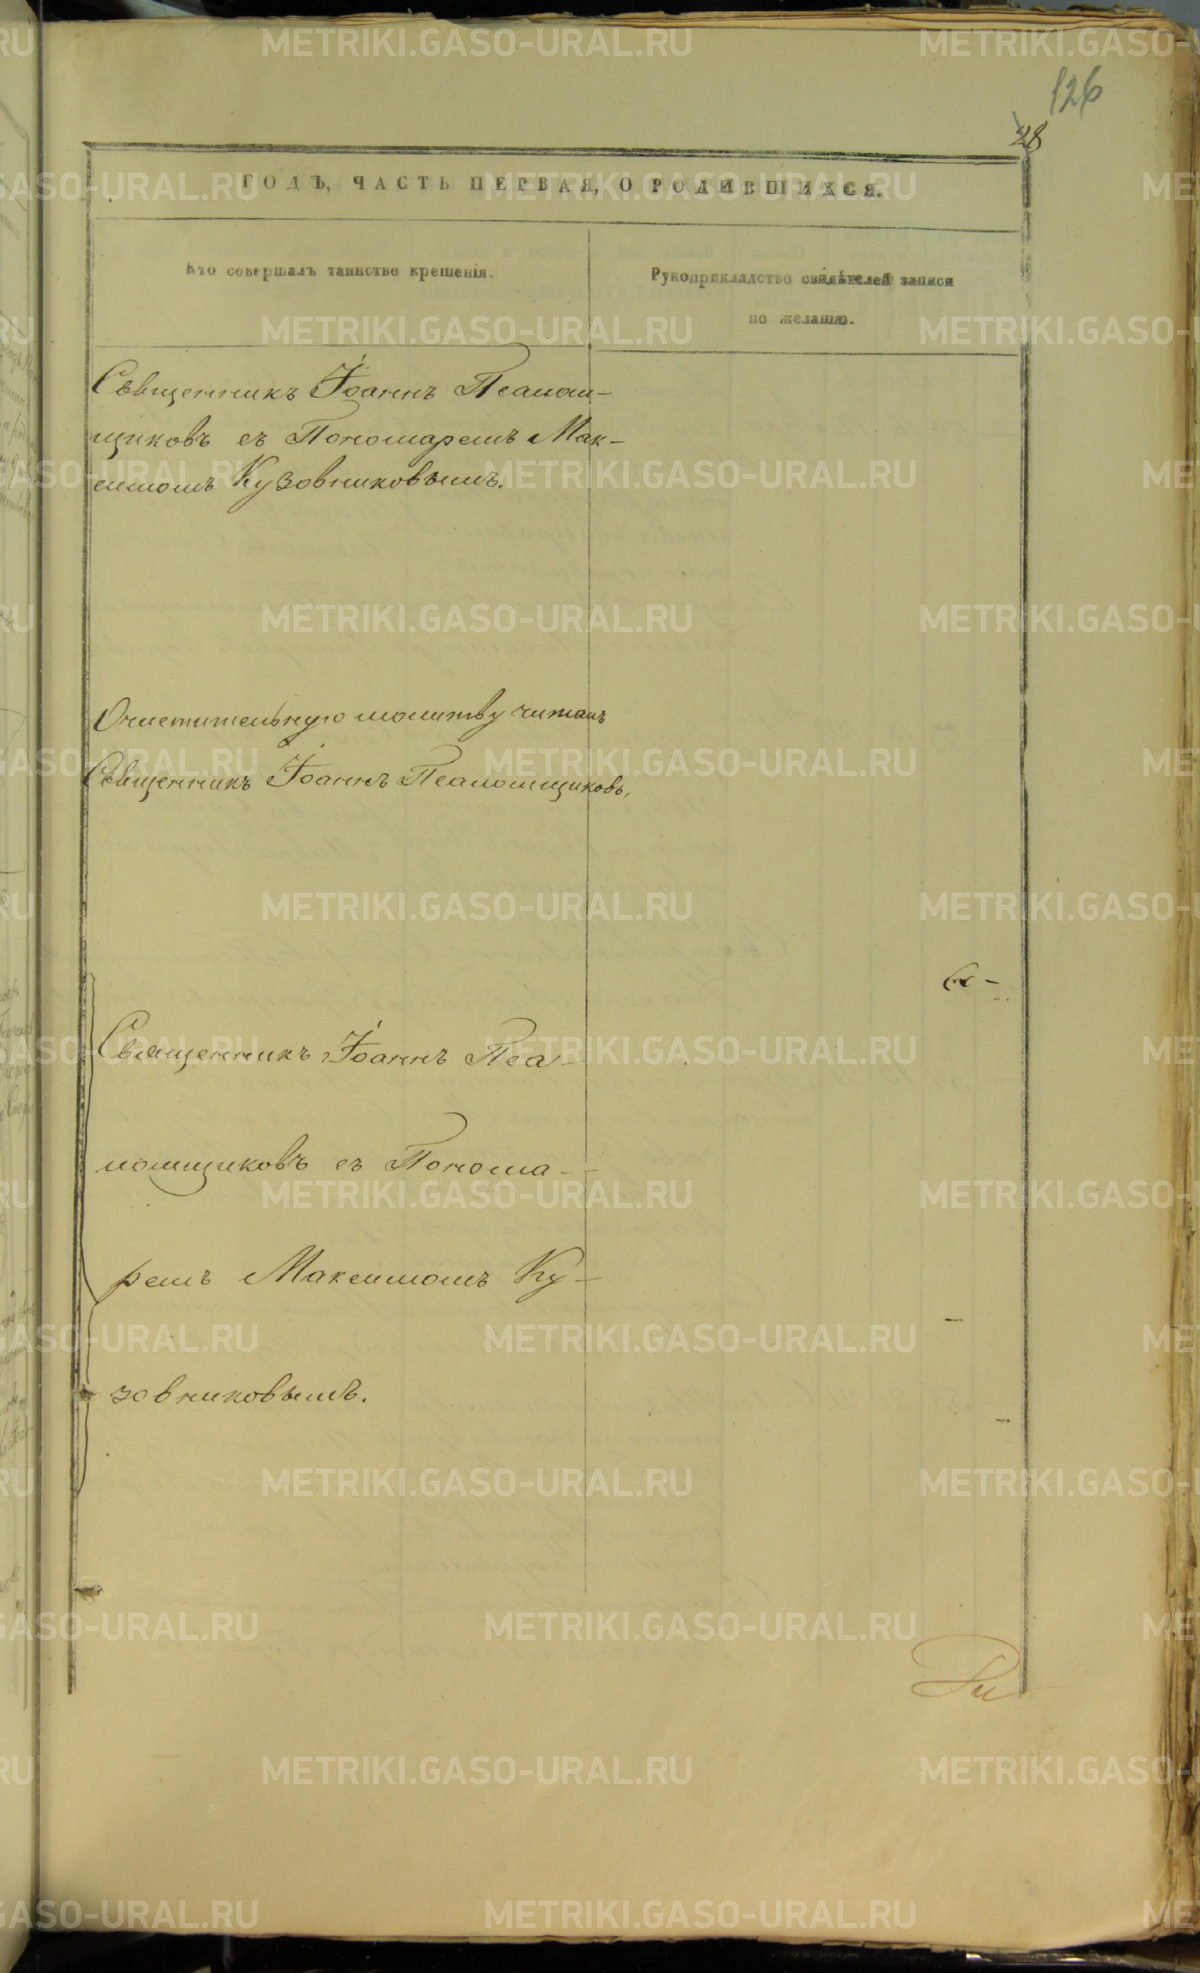 126
28
ГОДЪ, ЧАСТЬ ПЕРВАЯ, О РОДИВШИХСЯ.
Кто совершалъ таинство крещенія.
Рукоприкладство свидѣтелей записи
по желанію.
Священникъ Іоаннъ Псалом-
щиковъ съ Пономаремъ Мак-
симомъ Кузовниковымъ.
Очистительную молитву читалъ
Священникъ Іоаннъ Псаломщиковъ.
Священникъ Іоаннъ Пса-
ломщиковъ съ Понома-
ремъ Максимомъ Ку-
зовниковымъ.
METRIKI.GASO-URAL.RU